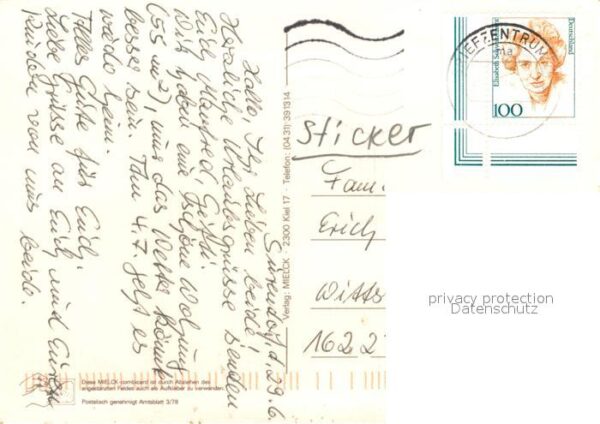 Surendorf, d. 29.6.
Hallo, Ihr Lieben beide!
Herzliche Urlaubsgrüsse senden
Euch Manfred, Gisela.
Wir haben eine schöne Wohnung
(55 m²), nur das Wetter könnte
besser sein. Am 4.7. geht es
wieder heim.
Alles Gute für Euch.
Liebe Grüsse an Euch und Euren
von uns beide.
Verlag: MIELCK · 2300 Kiel 17 · Telefon: (0431) 391314
Sticker
Fam.
Erich
Witts
1622
BRIEFZENTRUM
Elisabeth Schwarzhaupt
Deutschland
100
privacy protection
Datenschutz
Diese MIELCK-combicard ist durch Abziehen des
angestanzten Feldes auch als Aufkleber zu verwenden.
Postalisch genehmigt Amtsblatt 3/78